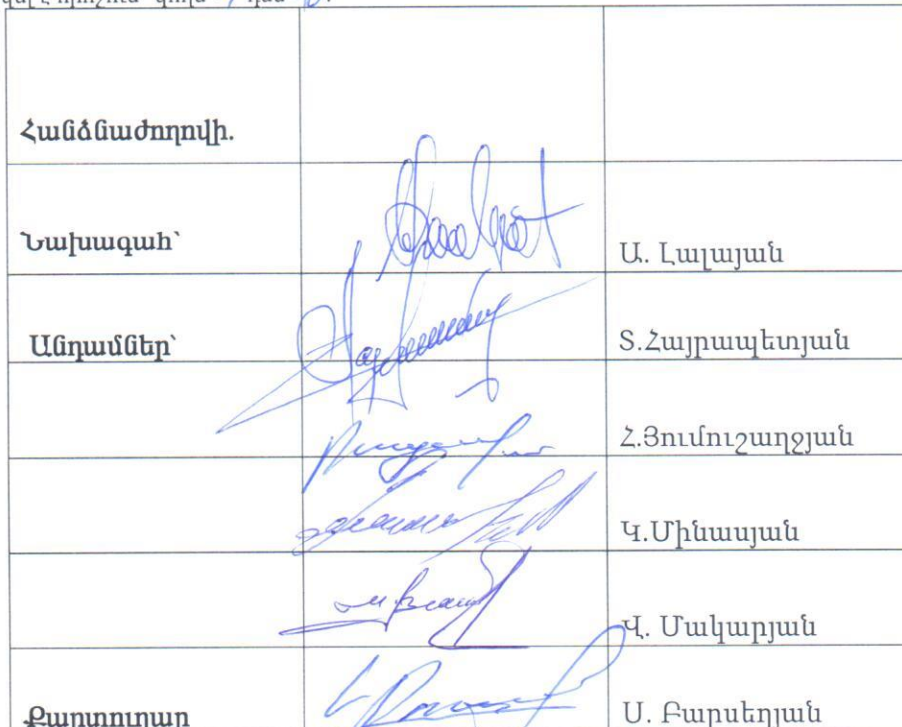 Հանձնաժողովի.
Նախագահ՝
Ա. Լալայան
Անդամներ՝
Տ.Հայրապետյան
Հ.Յումուշաղջյան
Կ.Մինասյան
Վ. Մակարյան
Քարտուղար
Ս. Բարսեղյան